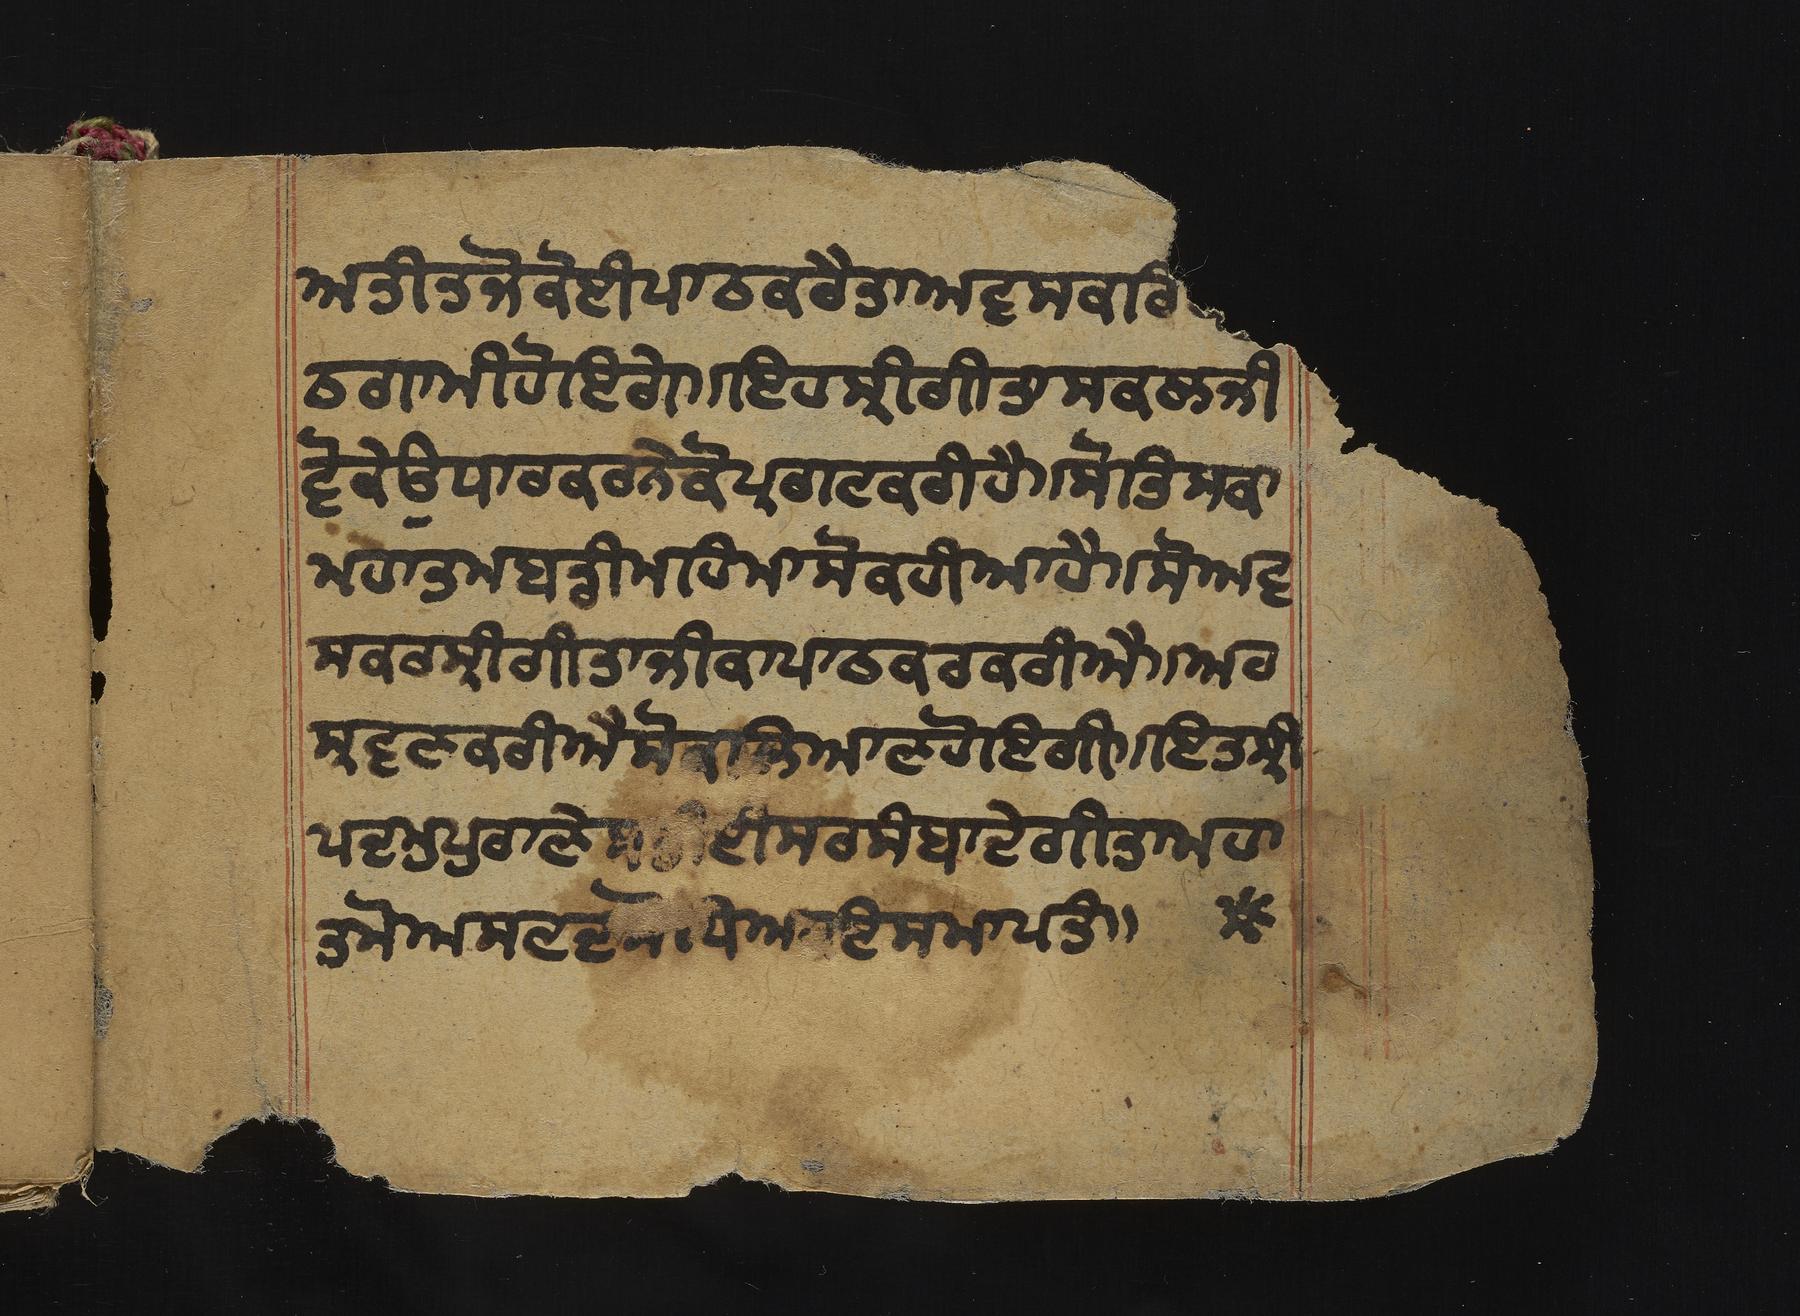 ਅਤੀਤਜੋਕੋਈਪਾਠਕਰੈਤਾਅਵਸਕਕਰਿ
ਠਗਾਮੀਹੋਇਗੇ॥ਇਹਸ੍ਰੀਗੀਤਾਸਕਲਜੀ
ਵੋਕੇਉਧਾਰਕਰਨੇਕੋਪ੍ਰਗਟਕਰੀਹੈ॥ਸੋਤਿਸਕਾ
ਮਹਾਤਮਬਡੀਮਹਿਮਾਸੋਕਹੀਆਹੈ॥ਸੋਅਵ
ਸਕਰਸ੍ਰੀਗੀਤਾਜੀਕਾਪਾਠਕਰਕਰੀਐ॥ਅਰ
ਸ੍ਰਵਣਕਰੀਐਸੋਕਲਿਆਣਹੋਇਗੀ॥ਇਤਸ੍ਰੀ
ਪਦਮੁਪੁਰਾਣੇ ਈਸਰਸੰਬਾਦੇਗੀਤਾਮਹਾ
ਤਮੋਅਸਟਦਸੋਧਿਆਇਸਮਾਪਤੰ॥